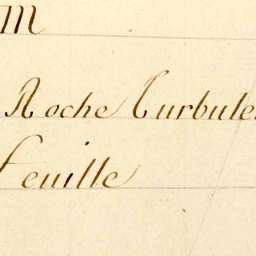 m
Roche Turbule
feuille